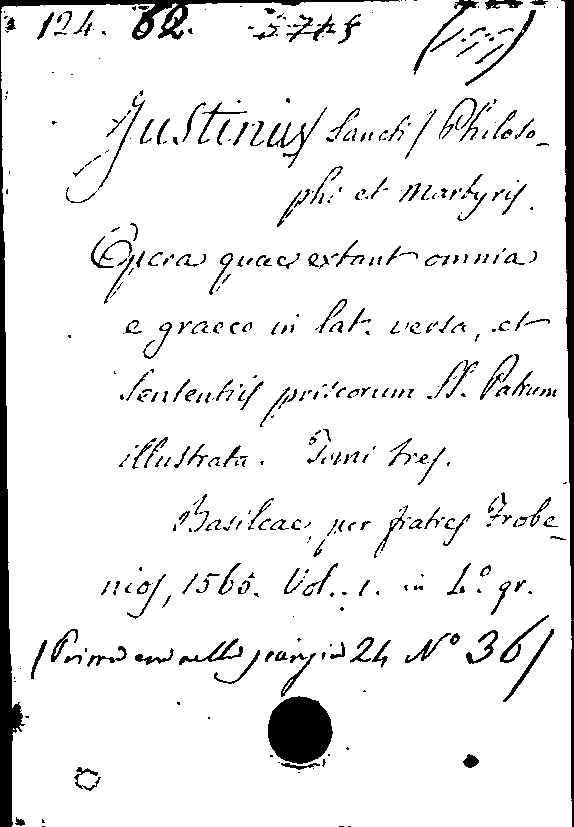 124. 62.
Justinus / Sancti / Philoso-
phi et Martyris.
Opera quae extant omnia
e graeco in lat. versa, et
sententiis priscorum SS. Patrum
illustrata. Tomi tres.
Basileae, per fratres Frobe-
nios, 1565. Vol. 1. in 4.º gr.
(Prima era nella 24 Nº 36)